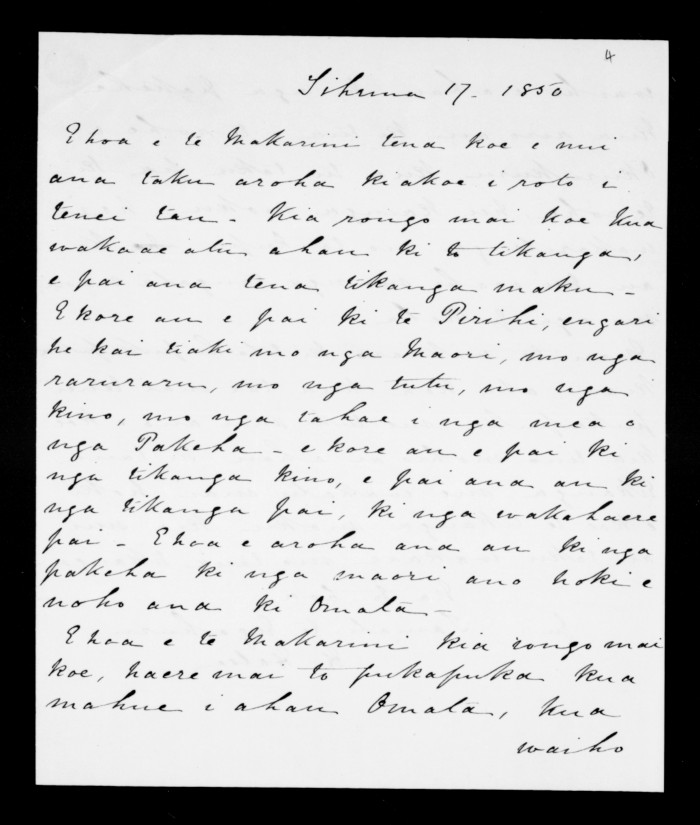 4
Tihema 17 - 1850
Ehoa e te Makarini tena koe e nui
ana taku aroha kiakoe i roto i
tenei tau - Kia rongo mai koe kua
wakaae atu ahau ki to tikanga,
e pai ana tena tikanga maku -
Ekore au e pai ki te Pirihi, engari
he kai tiaki mo nga Maori, mo nga
raruraru, mo nga tutu, mo nga
kino, mo nga tahae i nga mea o
nga Pakeha - ekore au e pai ki
nga tikanga kino, e pai ana au ki
nga tikanga pai, ki nga wakahaere
pai - Ehoa e aroha ana au ki nga
pakeha ki nga maori ano hoki e
noho ana ki Omata -
Ehoa e te Makarini kia rongo mai
koe, haere mai to pukapuka kua
mahue i ahau Omata, kua
waiho